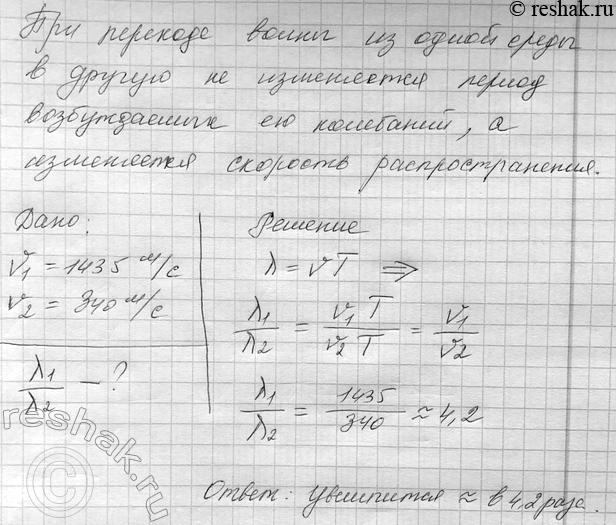 © reshak.ru
При переходе волны из одной среды
в другую не изменяется период
возбуждаемых ею колебаний, а
изменяется скорость распространения.
Дано:
v₁ = 1435 м/с
v₂ = 340 м/с
λ₁/λ₂ - ?
Решение
λ = vT ⇒
λ₁/λ₂ = v₁T/v₂T = v₁/v₂
λ₁/λ₂ = 1435/340 ≈ 4,2
Ответ: Увеличится ≈ в 4,2 раза.
© reshak.ru